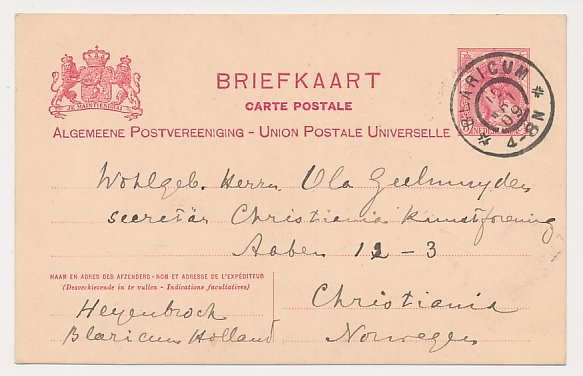 JE MAINTIENDRAI
BRIEFKAART
CARTE POSTALE
ALGEMEENE POSTVEREENIGING - UNION POSTALE UNIVERSELLE
BLARICUM
4-8N
NEDERLAND
Wohlgeb. Herrn Ola Geelmuyden
secretär Christiania Kunstforening
Aaben 12-3
NAAM EN ADRES DES AFZENDERS - NOM ET ADRESSE DE L'EXPÉDITEUR
(Desverkiezende in te vullen - Indications facultatives)
Christiania
Heyenbrock
Blaricum Holland
Norwegen